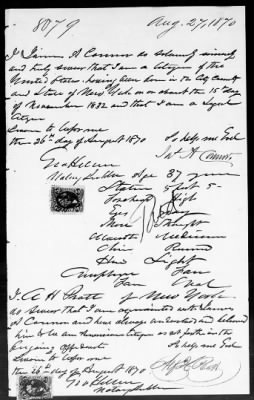 8079
Aug. 27, 1870
I James A Connor do solemnly
and truly swear that I am a Citizen of the
United States having been born in the City County
and State of New York on or about the 15th day
of November 1832 and that I am a Loyal
Citizen
Sworn to before me
the 26th day of August 1870
So help me God
Jas A Connor
Geo Hillen
Notary Public
Age 37 years
Stature 5 feet 5
Forehead High
Eyes
Nose Straight
Mouth Medium
Chin Round
Hair Light
Complexion Fair
Face Oval
I. A H Pratt of New York
do swear that I am acquainted with James
A Connor and have always understood and believed
him to be an American Citizen as set forth in the
foregoing affidavit
So help me God
Sworn to before me
the 26th day of August 1870
A H Pratt
Geo Hillen
Notary Public